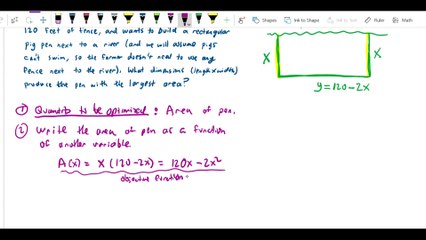 Ink to Shape
Ink to
120 feet of fence, and wants to build a rectangular
pig pen next to a river (and we will assume pigs
can't swim, so the farmer doesn't need to use any
fence next to the river). What dimensions (length & width)
produce the pen with the largest area?
x
x
y = 120 - 2x
① Quantity to be optimized : Area of pen.
② Write the area of pen as a function
of another variable
A(x) = x (120 - 2x) = 120x - 2x²
objective function